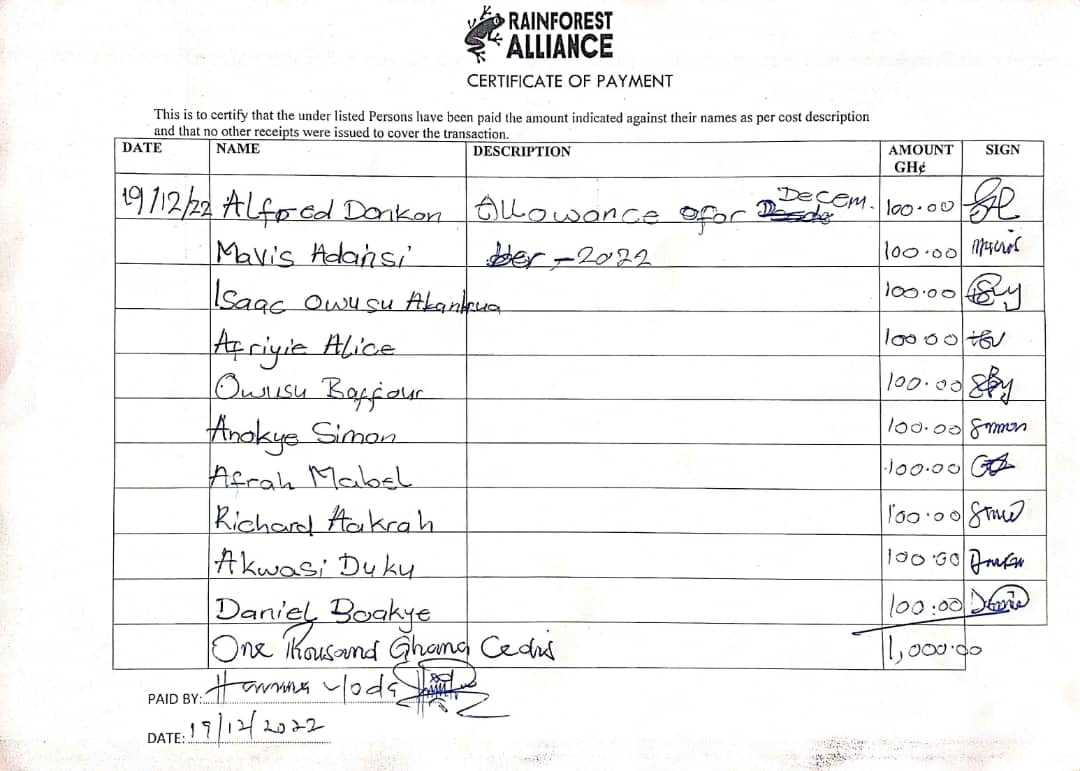 RAINFOREST
ALLIANCE
CERTIFICATE OF PAYMENT
This is to certify that the under listed Persons have been paid the amount indicated against their names as per cost description
and that no other receipts were issued to cover the transaction.
DATE NAME DESCRIPTION AMOUNT GH¢ SIGN
19/12/22 Alfred Donkon Allowance for Decem. 100.00
Mavis Adansi ber - 2022 100.00 Mavis
Isaac Owusu 100.00
Afriyie Alice 100.00
Owusu Baffour 100.00
Anokye Simon 100.00 Simon
Afrah Mabel 100.00
Richard Aakrah 100.00
Akwasi Duku 100.00
Daniel Boakye 100.00
One Thousand Ghana Cedis 1,000.00
PAID BY:
DATE: 19/12/2022